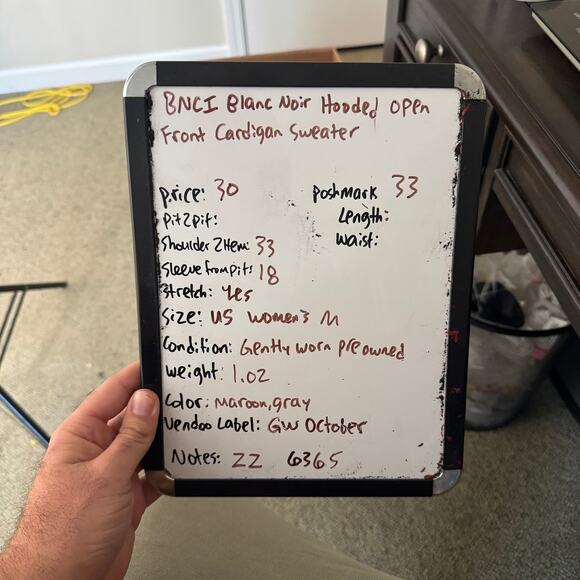 BNCI Blanc Noir Hooded open
Front Cardigan Sweater
price: 30 poshmark 33
Pit2pit: Length:
Shoulder 2Hem: 33 Waist:
Sleeve from pit: 18
Stretch: Yes
Size: US women's M
Condition: Gently worn preowned
weight: 1.02
Color: maroon, gray
Vendoo Label: GW October
Notes: ZZ 6365